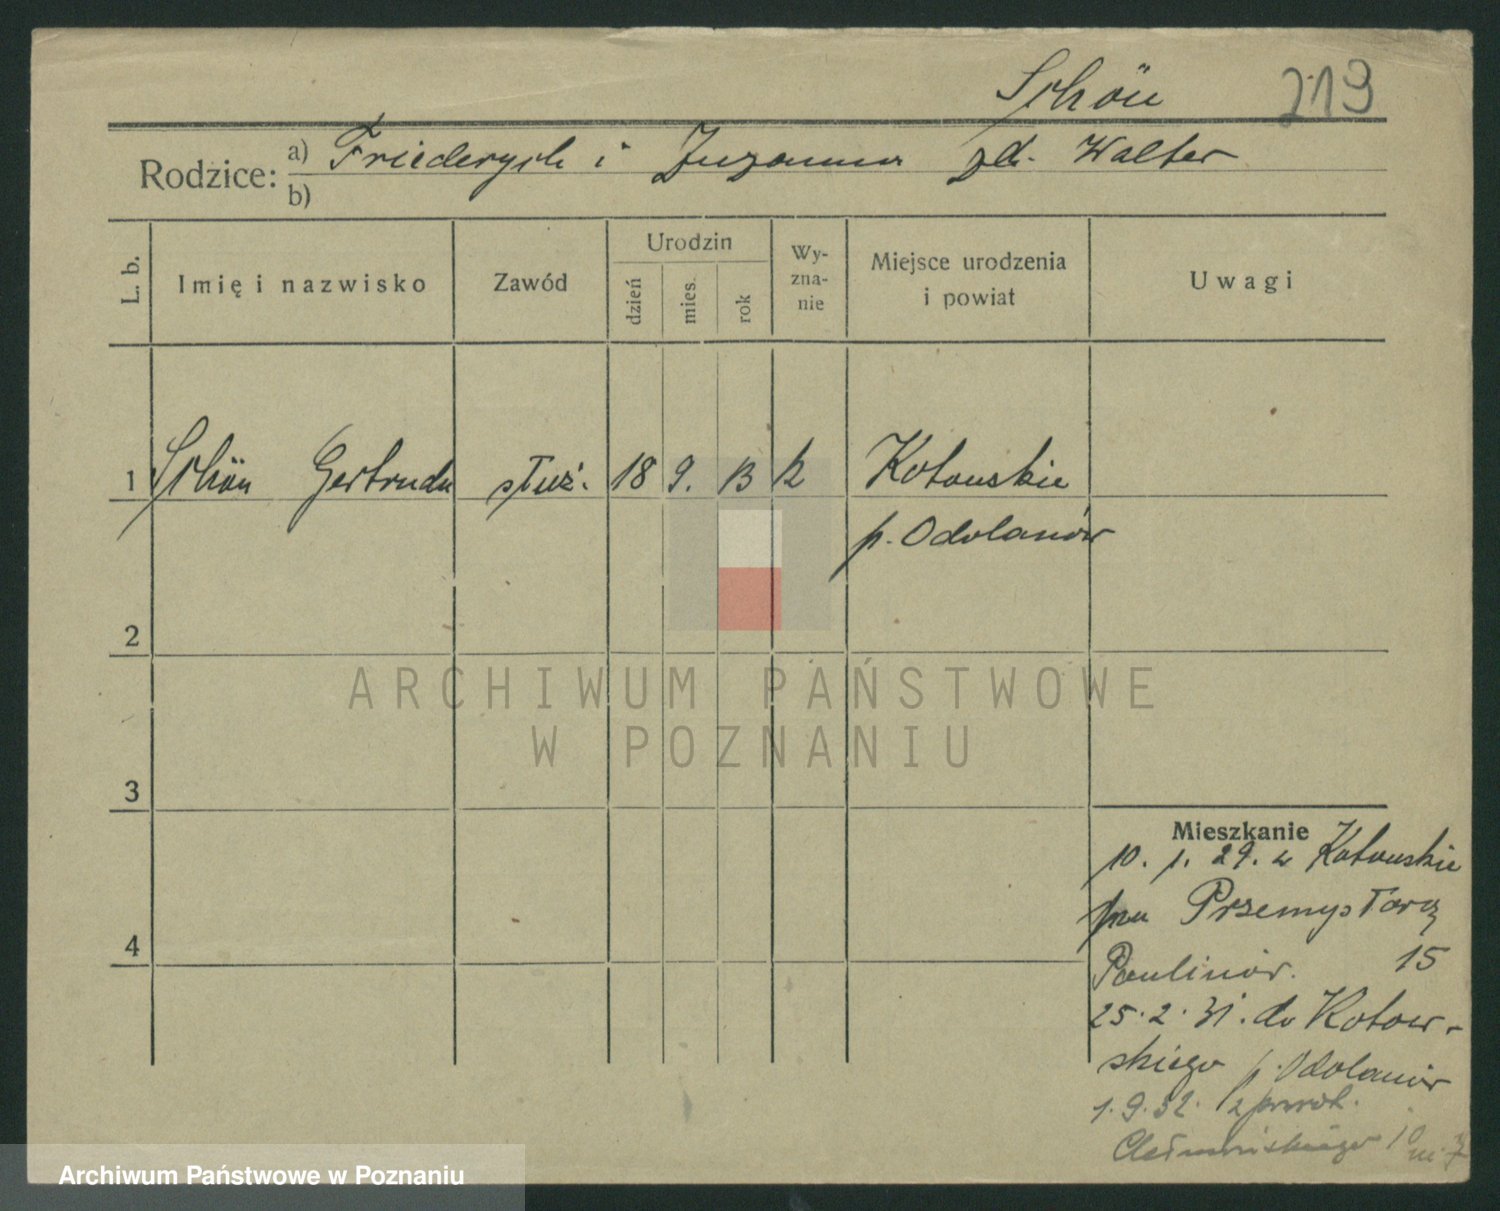 Schön 219
Rodzice: a) Friederych i Zuzanna zd. Walter
b)
L. b. Imię i nazwisko Zawód Urodzin dzień mies. rok Wyznanie Miejsce urodzenia i powiat Uwagi
1 Schön Gertruda służ. 18 9. 13 k Kotowskie
p. Odolanów
2
3
4
Mieszkanie
10. 1. 29. z Kotowskie
Przemysłowa
Paulinów. 15
25. 2. 31. do Kotow-
skiego p. Odolanów
1. 9. 32. z powrot.
Chełmońskiego 10 m. 7
ARCHIWUM PAŃSTWOWE
W POZNANIU
Archiwum Państwowe w Poznaniu